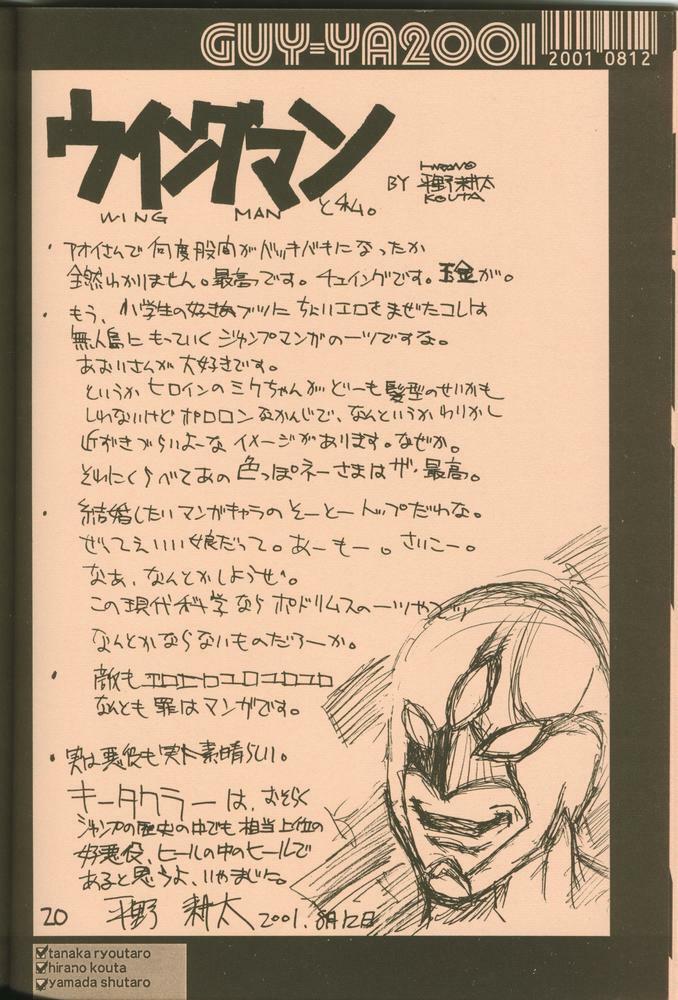 GUY-YA2001
2001 0812
ウイングマン
WING MAN と私。
BY 平野耕太
HIRANO
KOUTA
・アオイさんで何度股間がバッキバキになったか
全然わかりません。最高です。チュイングです。玉金が。
・もう、小学生の好きなブツに ちょいエロをまぜたコレは
無人島にもっていくジャンプマンガの一ツですな。
あおいさんが大好きです。
というか ヒロインのミクちゃんが どーも髪型のせいかも
しれないけど ポロロンなかんじで、なんというか わりかし
近がきづらいよーな イメージがあります。なぜか。
それにくらべてあの色っぽネーさまは ザ・最高。
・結婚したいマンガキャラのそーとートップだわな。
ぜってえいい娘だって。あーもー。さいこー。
なあ、なんとかしようせ。
この現代科学なら ポドリムスの一ツや二ツ
なんとかならないものだろーか。
・敵もエロエロエロエロエロ
なんとも罪はマンガです。
・実は悪役も実に素晴らしい。
キータクラーは、おそらく
ジャンプの歴史の中でも相当上位の
好悪役、ヒールの中のヒールで
あると思うよ、いやまじで。
平野 耕太 2001.8月12日
20
tanaka ryoutaro
hirano kouta
yamada shutaro